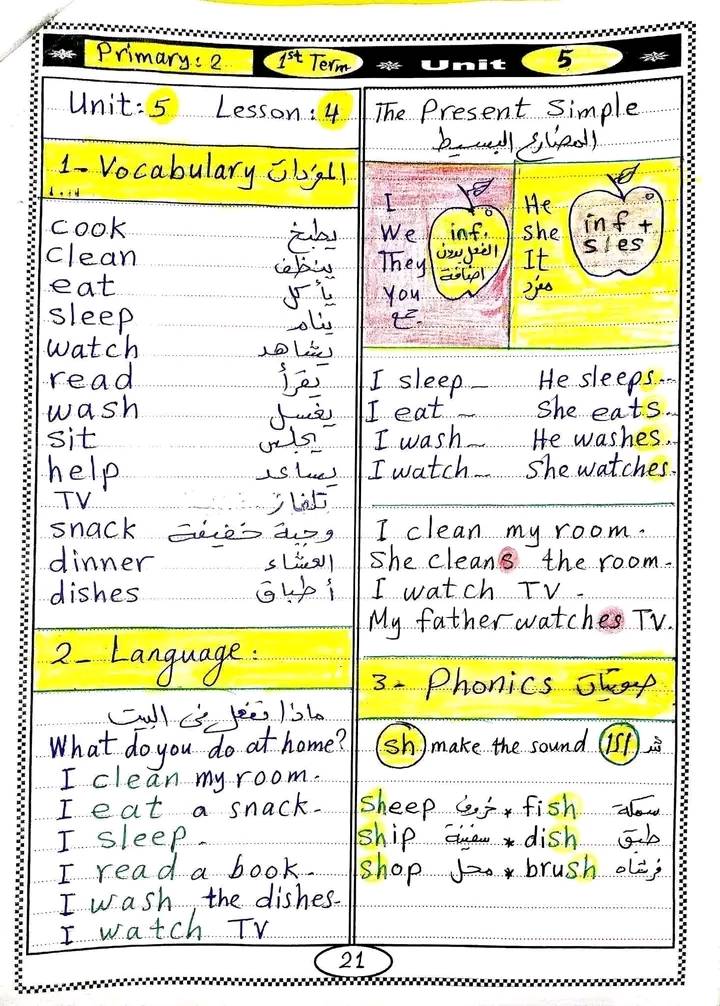 Primary: 2 1st Term Unit 5
Unit: 5 Lesson: 4
1- Vocabulary المفردات
cook يطبخ
clean ينظف
eat يأكل
sleep ينام
watch يشاهد
read يقرأ
wash يغسل
sit يجلس
help يساعد
TV تلفاز
snack وجبة خفيفة
dinner العشاء
dishes أطباق
2- Language:
ماذا تفعل في البيت
What do you do at home?
I clean my room.
I eat a snack.
I sleep.
I read a book.
I wash the dishes.
I watch TV
The Present Simple
المضارع البسيط
I
We
They
You
جمع
inf.
الفعل بدون
اضافة
He
She
It
مفرد
inf +
s/es
I sleep He sleeps
I eat She eats
I wash He washes
I watch She watches
I clean my room.
She cleans the room.
I watch TV.
My father watches TV.
3- Phonics صوتيات
sh make the sound /ʃ/ ش
sheep خروف * fish سمكة
ship سفينة * dish طبق
shop محل * brush فرشاه
21